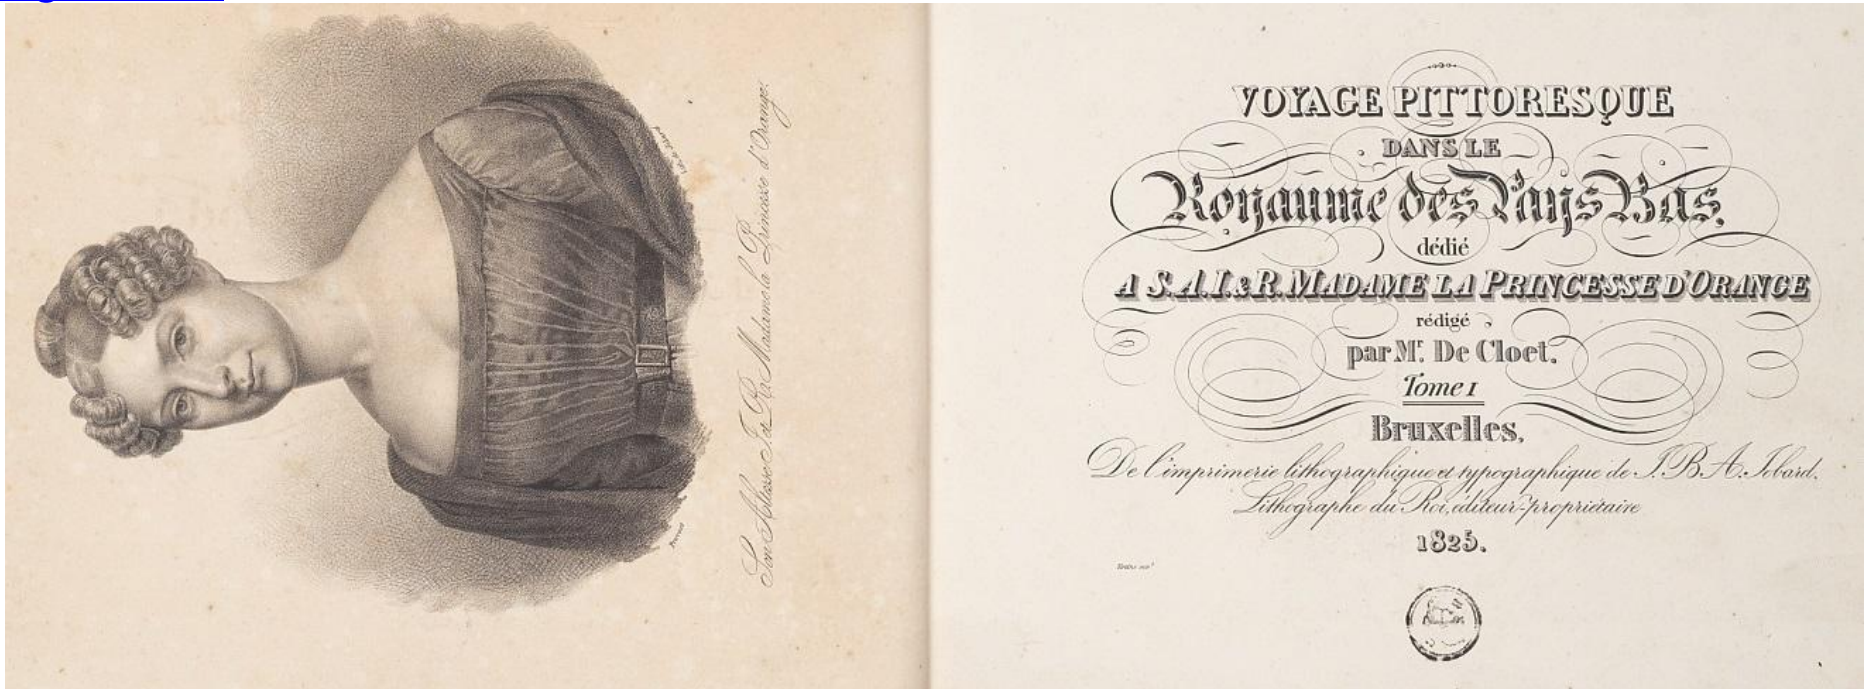 Son Altesse I. et R. Madame la Princesse d'Orange.
VOYAGE PITTORESQUE
DANS LE
Royaume des Pays Bas,
dédié
A S.A.I.&R. MADAME LA PRINCESSE D'ORANGE
rédigé
par Mr. De Cloet.
Tome I
Bruxelles,
De l'imprimerie lithographique et typographique de J.B.A. Jobard,
Lithographe du Roi, éditeur-propriétaire
1825.